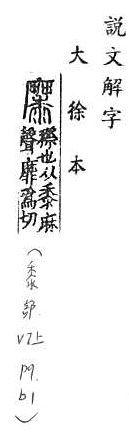 說文解字
大徐本
穄也从黍麻
聲靡爲切
(黍部 V7上 pg. b1)